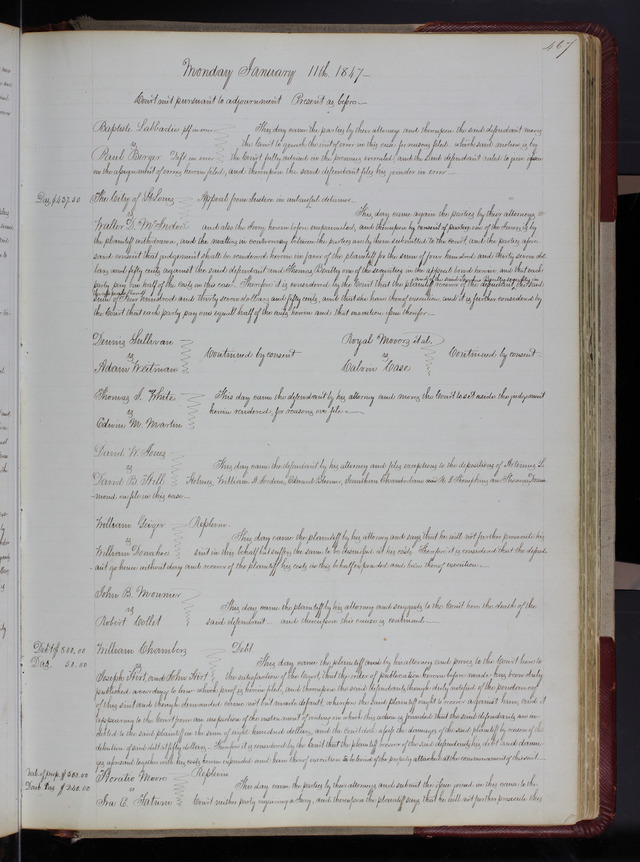 467
Monday January 11th. 1847
Court met pursuant to adjournment Present as before
Baptiste Labbadie plff in error This day came the parties by their attorneys and thereupon the said defendant moves
vs the Court to quash the writ of error in this case for reasons filed which said motion is by
Paul Berger Deft in error the Court fully advised in the premises overruled, and the said defendant ruled to join
on the assignment of errors herein filed, and thereupon the said defendant files his joinder in error
Dag. $437.50 The City of St Louis Appeal from
vs This day came again the parties by their attorneys
Walter D. and also the Jury herein before empannelled, and thereupon by consent of parties one of the Jurors is by
the plaintiff withdrawn, and the matters in controversy between the parties are by them submitted to the Court, and the parties afore
said consent that judgement shall be rendered herein in favor of the plaintiff for the sum of four hundred and thirty seven dol
lars and fifty cents against the said defendant and Thomas one of the securities in the appeal bond herein and that each
party pay one half of the costs in this case. Therefore it is considered by the Court that the plaintiff recover of the defendant the said
sum of four hundred and thirty seven dollars and fifty cents, and that she have thereof execution, and it is further considered by
the Court that each party pay one equal half of the costs herein and that execution issue therefor
Dennis Sullivan
vs Continued by consent
Adam Weitman
Royal Moore et al.
vs Continued by consent
Calvin Case
Thomas J. White This day came the defendant by his attorney and moves the Court to set aside the judgement
vs herein rendered, for reasons on file
Edwin M. Martin
David W. Jones
vs This day came the defendant by his attorney and files exceptions to the depositions of L.
David B. Hill Holmes, William Edward Jonathan Chamberlain and
on file in this case
William Geiger Replevin
vs This day came the plaintiff by his attorney and says that he will not further prosecute his
William Donahoe suit in this behalf but suffers the same to be dismissed at his costs. Therefore it is considered that the defend
ant go hence without day and recover of the plaintiff his costs in this behalf expended and have thereof execution
John B. Mounier
vs This day came the plaintiff by his attorney and suggests to the Court here the death of the
Robert Collet said defendant and therefore this cause is continued
Debt $800.00 William Chambers Debt
Dag. 50.00 vs This day came the plaintiff by his attorney and proves to the Court here to
Joseph and John the satisfaction of the Court, that the order of publication herein before made has been duly
published according to law which proof is herein filed, and thereupon the said defendants though duly notified of the pendency
of this suit and though demanded came not but made default, wherefore the said plaintiff ought to recover against them, and it
appearing to the Court from an inspection of the instrument of writing on which this action is founded that the said defendants are in
debted to the said plaintiff in the sum of eight hundred dollars, and the Court doth assess the damages of the said plaintiff by reason of the
detention of said debt at fifty dollars. Therefore it is considered by the Court that the plaintiff recover of the said defendants his debt and dama
ges aforesaid together with his costs herein expended and have thereof execution to be levied of the property attached at the commencement of this suit
Val. of prop. Horatio Moore Replevin
Doub. Dag. $240.00 vs This day came the parties by their attorneys and submit the issue joined in this cause to the
Ira C. Tatum Court neither party requiring a Jury, and thereupon the plaintiff says that he will not further prosecute his